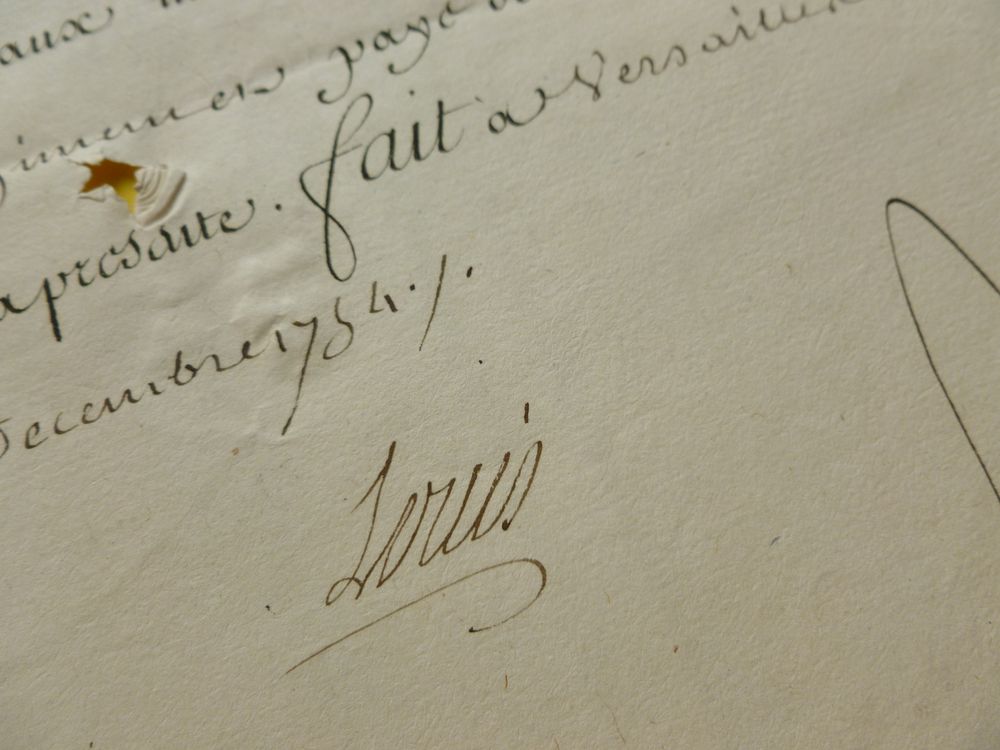 aux
payé
presante. fait a Versailles
Decembre 1754./.
Louis